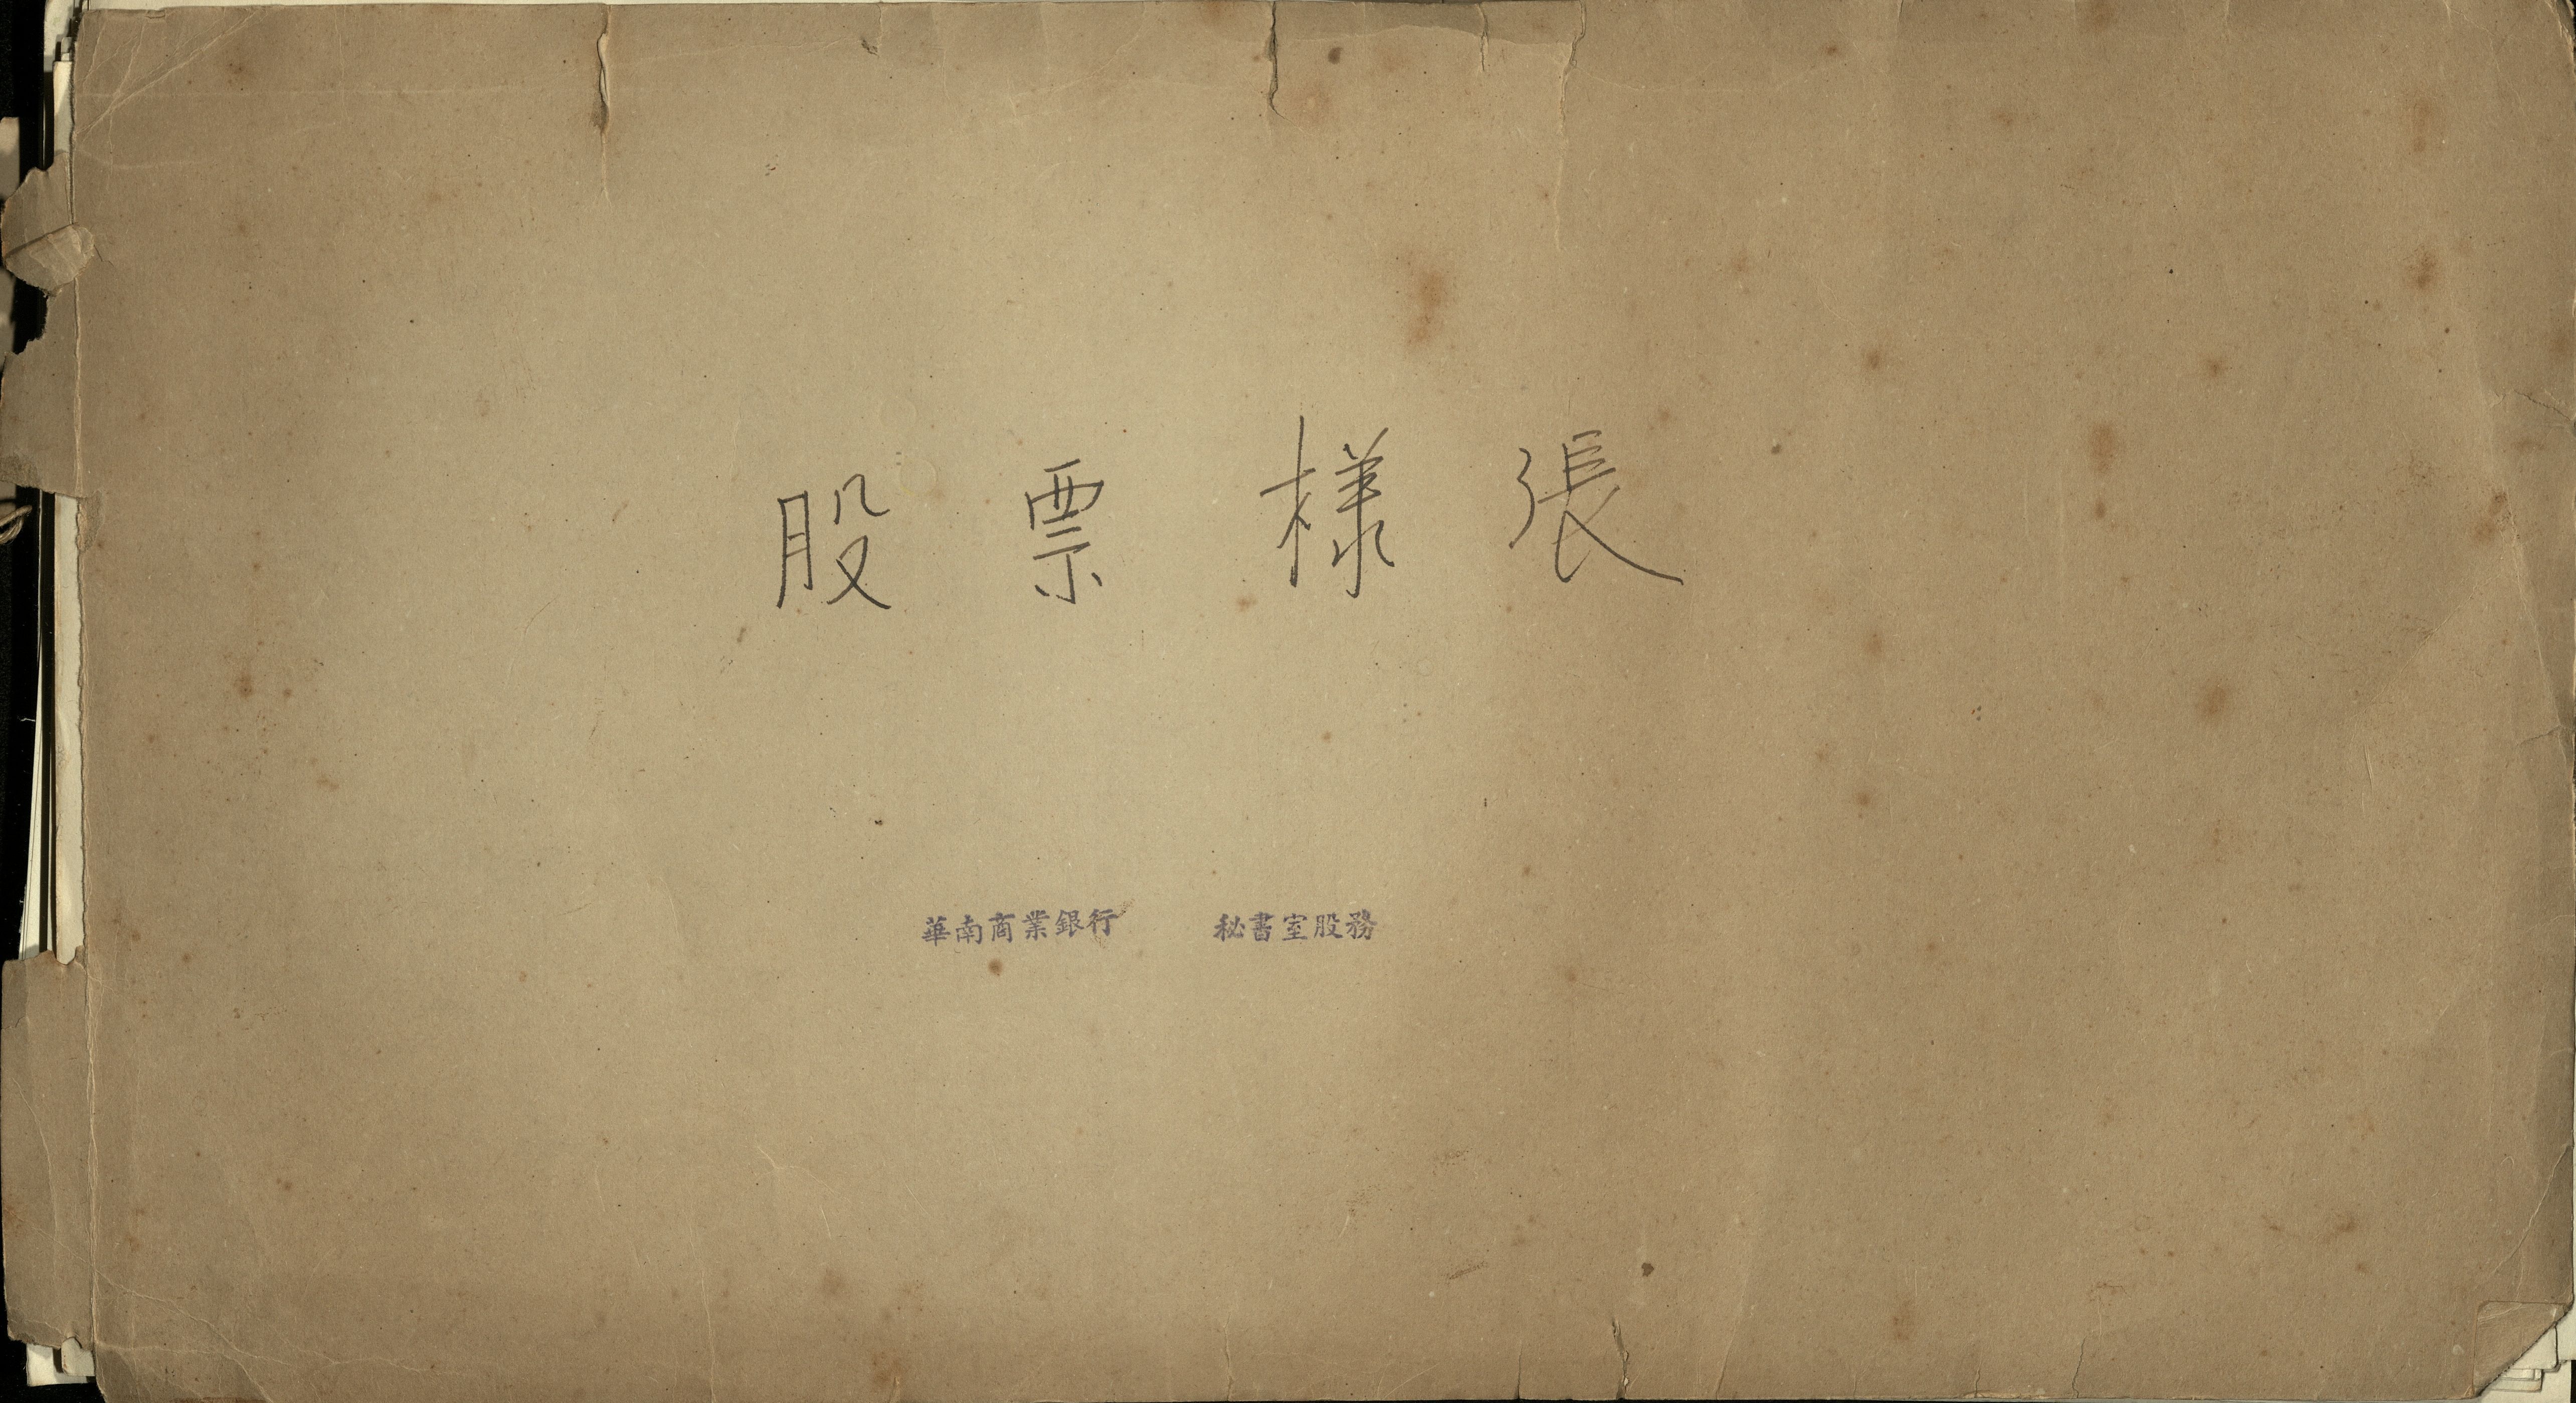 股票樣張
華南商業銀行 秘書室股務